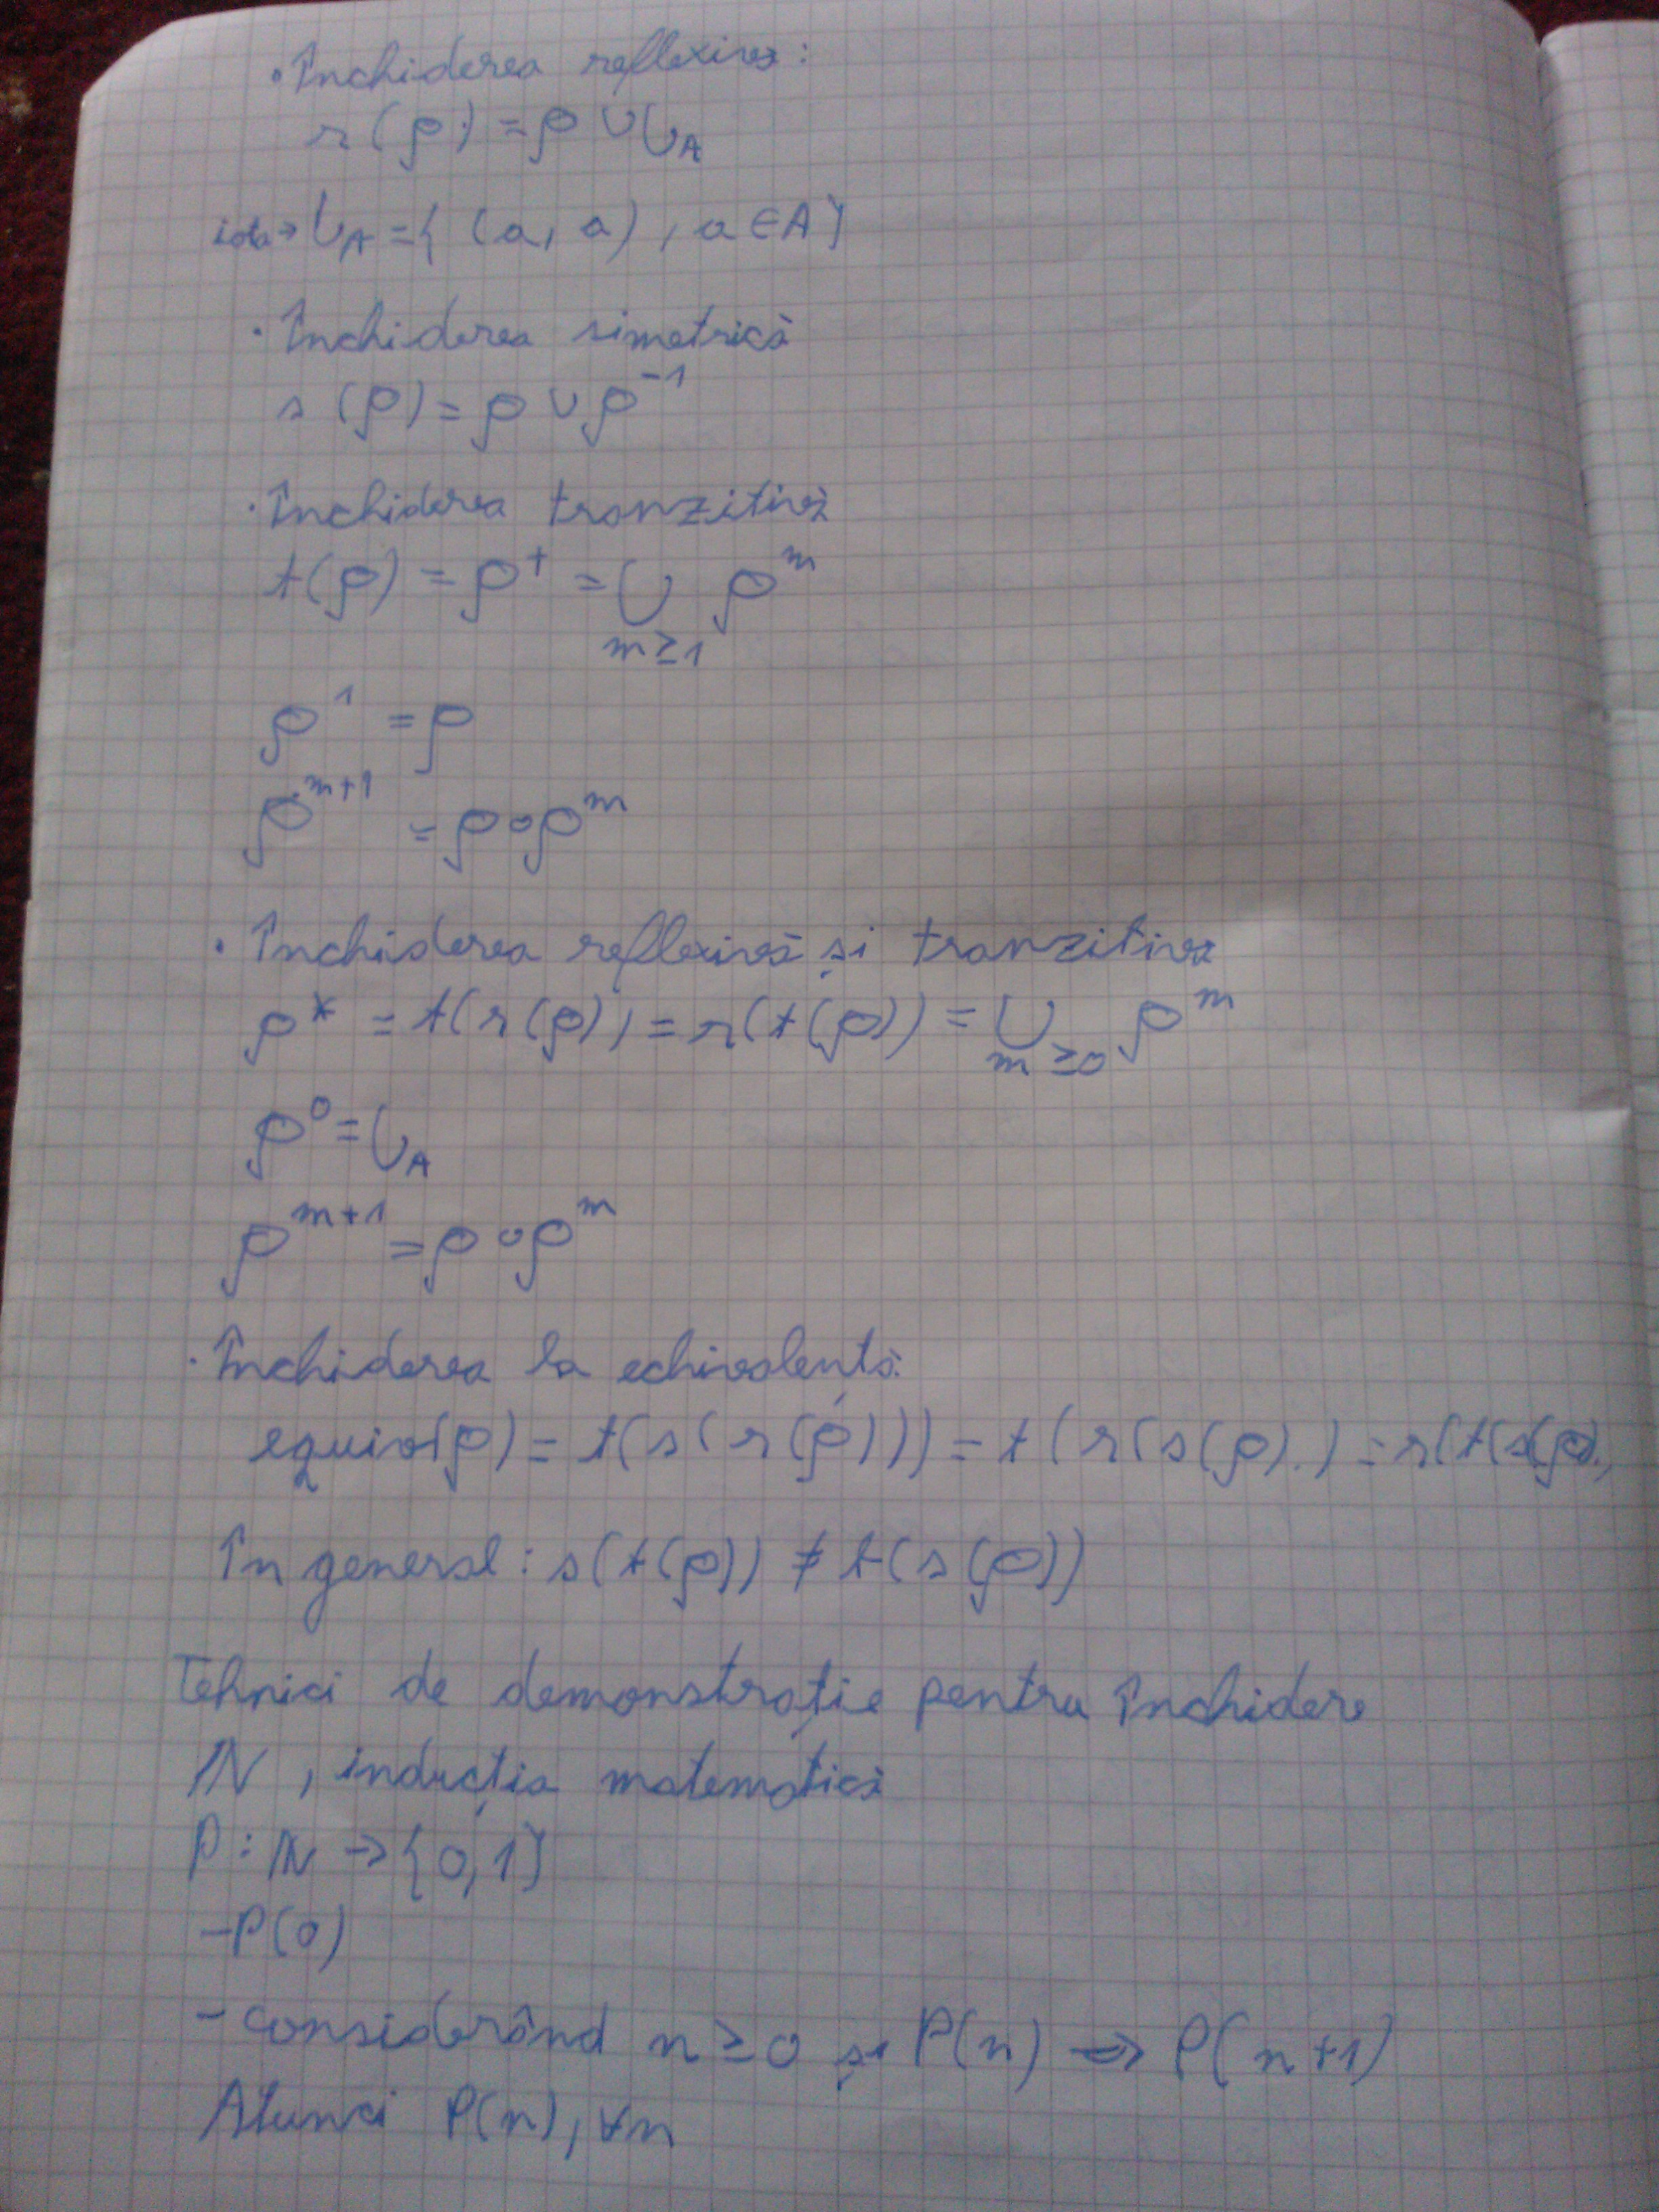 • Închiderea reflexivă:
r(ρ) = ρ ∪ ι_A
ι_A = { (a, a), a ∈ A }
• Închiderea simetrică
s(ρ) = ρ ∪ ρ^-1
• Închiderea tranzitivă
t(ρ) = ρ^+ = ∪_{m≥1} ρ^m
ρ^1 = ρ
ρ^{m+1} = ρ ∘ ρ^m
• Închiderea reflexivă și tranzitivă
ρ* = t(r(ρ)) = r(t(ρ)) = ∪_{m≥0} ρ^m
ρ^0 = ι_A
ρ^{m+1} = ρ ∘ ρ^m
• Închiderea la echivalență:
equiv(ρ) = t(s(r(ρ))) = t(r(s(ρ))) = r(t(s(ρ)))
În general: s(t(ρ)) ≠ t(s(ρ))
Tehnici de demonstrație pentru închidere
ℕ, inducția matematică
P: ℕ → {0,1}
- P(0)
- considerând n ≥ 0 și P(n) => P(n+1)
Atunci P(n), ∀n